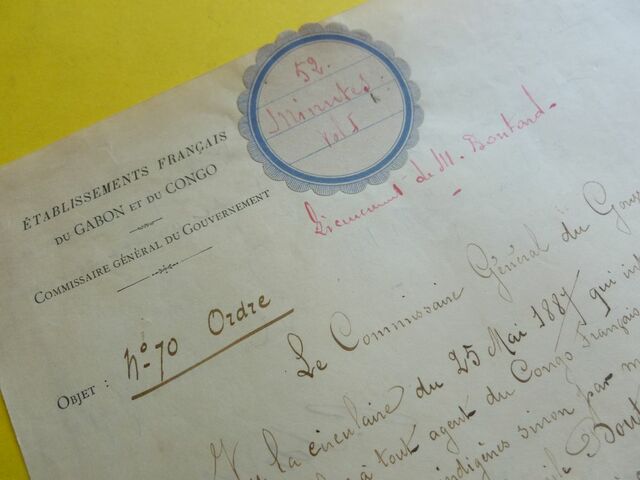 52.
Minutes
vol 5
ÉTABLISSEMENTS FRANÇAIS
DU GABON ET DU CONGO
COMMISSAIRE GÉNÉRAL DU GOUVERNEMENT
Licenciement de M. Boutard.
OBJET :
N° 70 Ordre
Le Commissaire Général du Gouv
Vu la circulaire du 25 Mai 1887 qui int
à tout agent du Congo Français
indigènes sinon par m
Bout